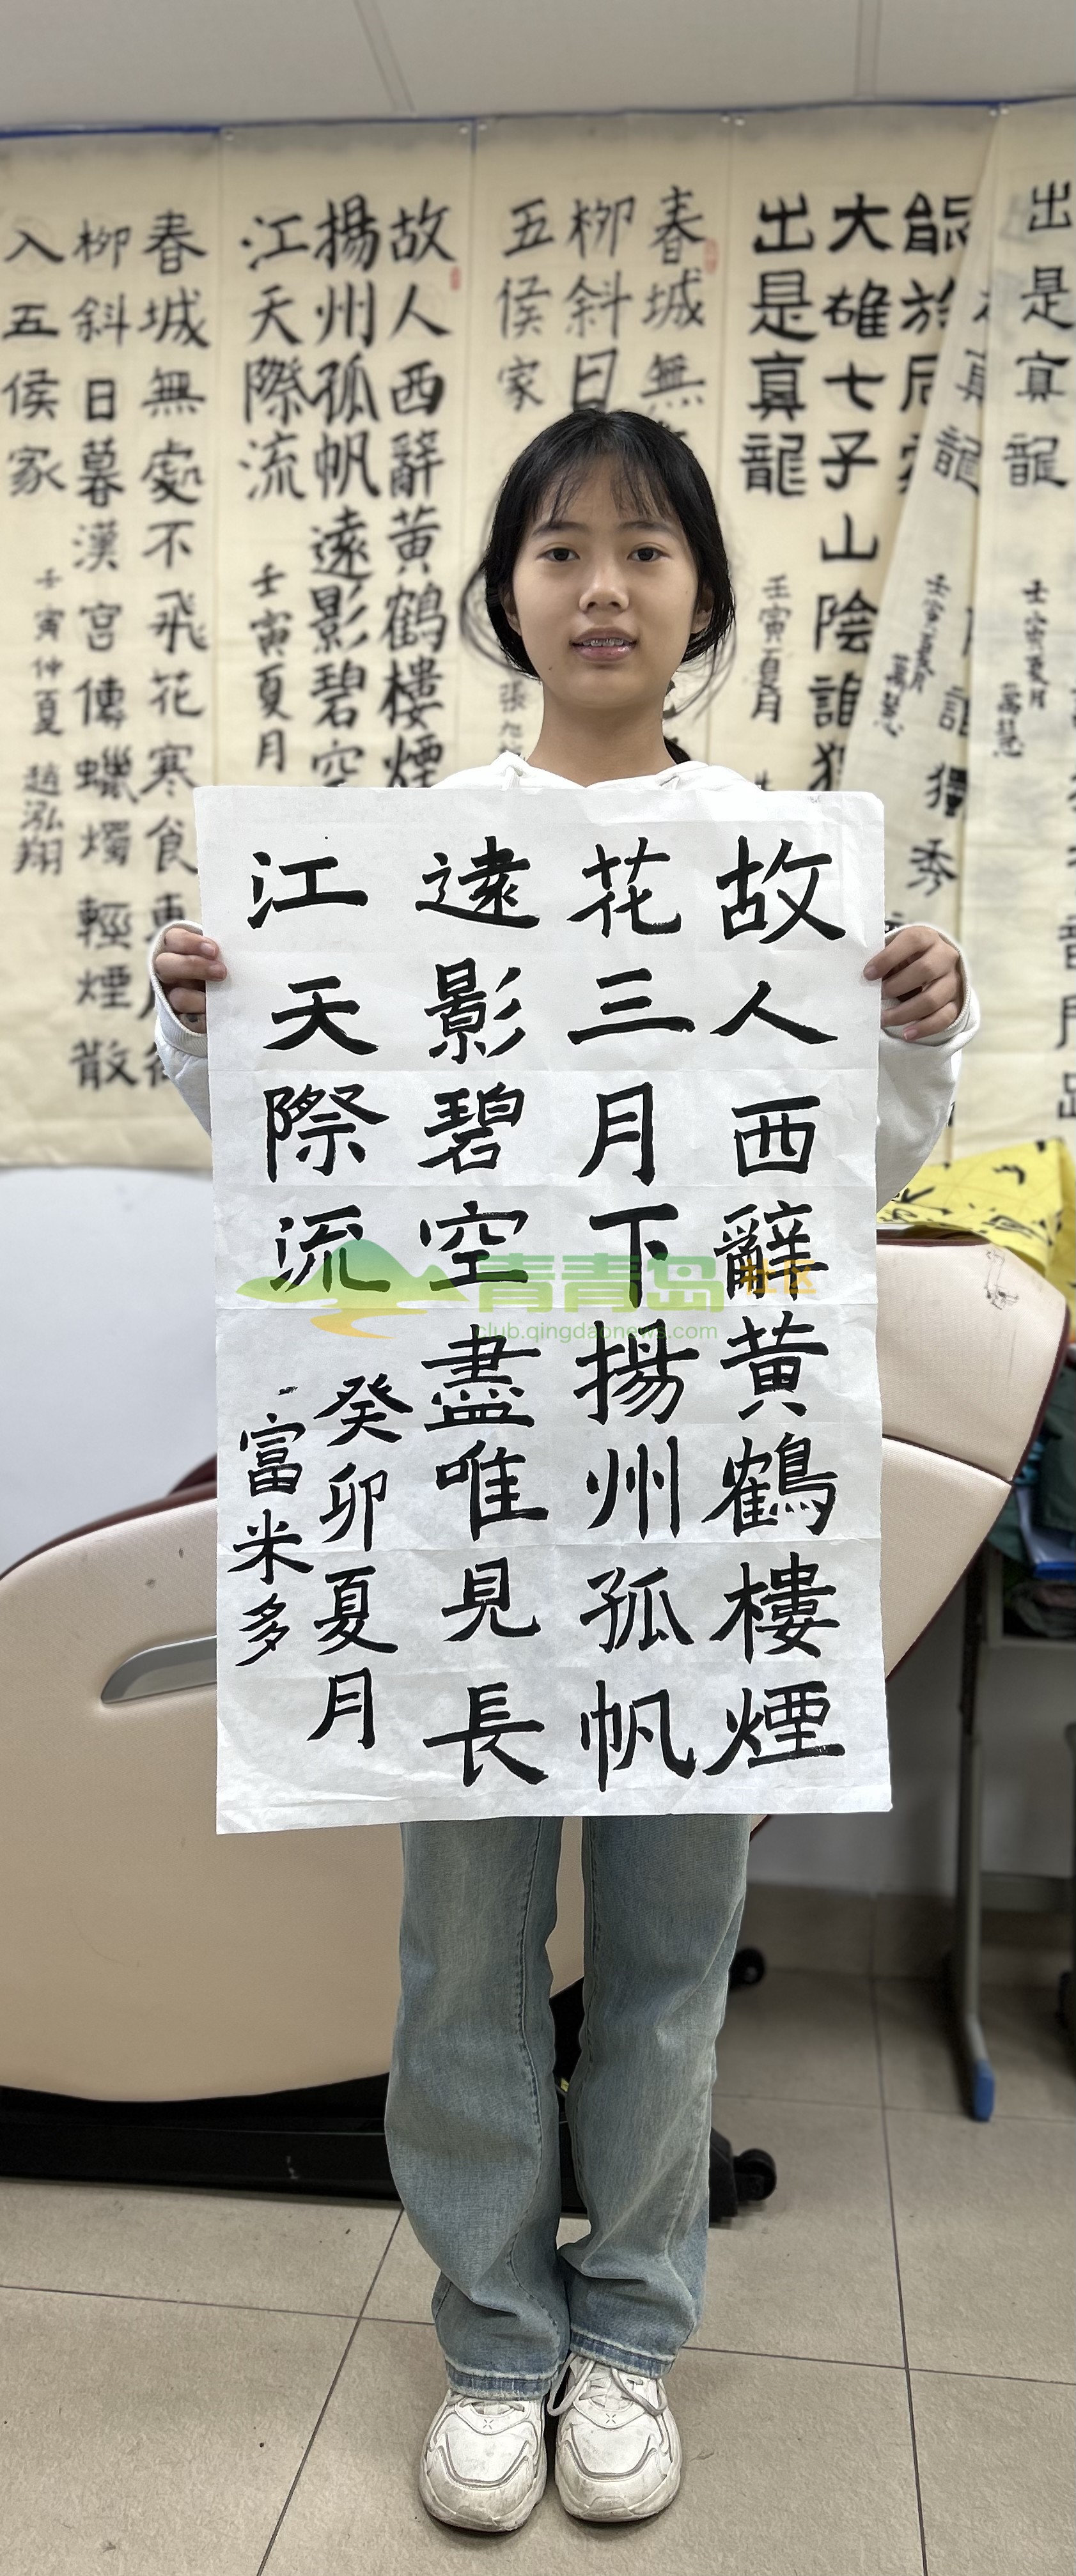 故人西辭黃鶴樓煙
花三月下揚州孤帆
遠影碧空盡唯見長
江天際流
癸卯夏月
富米多
青青岛社区
club.qingdaonews.com
出
是
真
龍
壬寅夏月
能於
大雄七子山陰誰獨
出是真龍
壬寅夏月
真
龍
獨
秀
壬寅夏月
春城無
柳斜日
五侯家
張
故人西辭黃鶴樓煙
揚州孤帆遠影碧空
江天際流
壬寅夏月
春城無處不飛花寒食東
柳斜日暮漢宮傳蠟燭輕煙散
入五侯家
壬寅仲夏趙泓翔